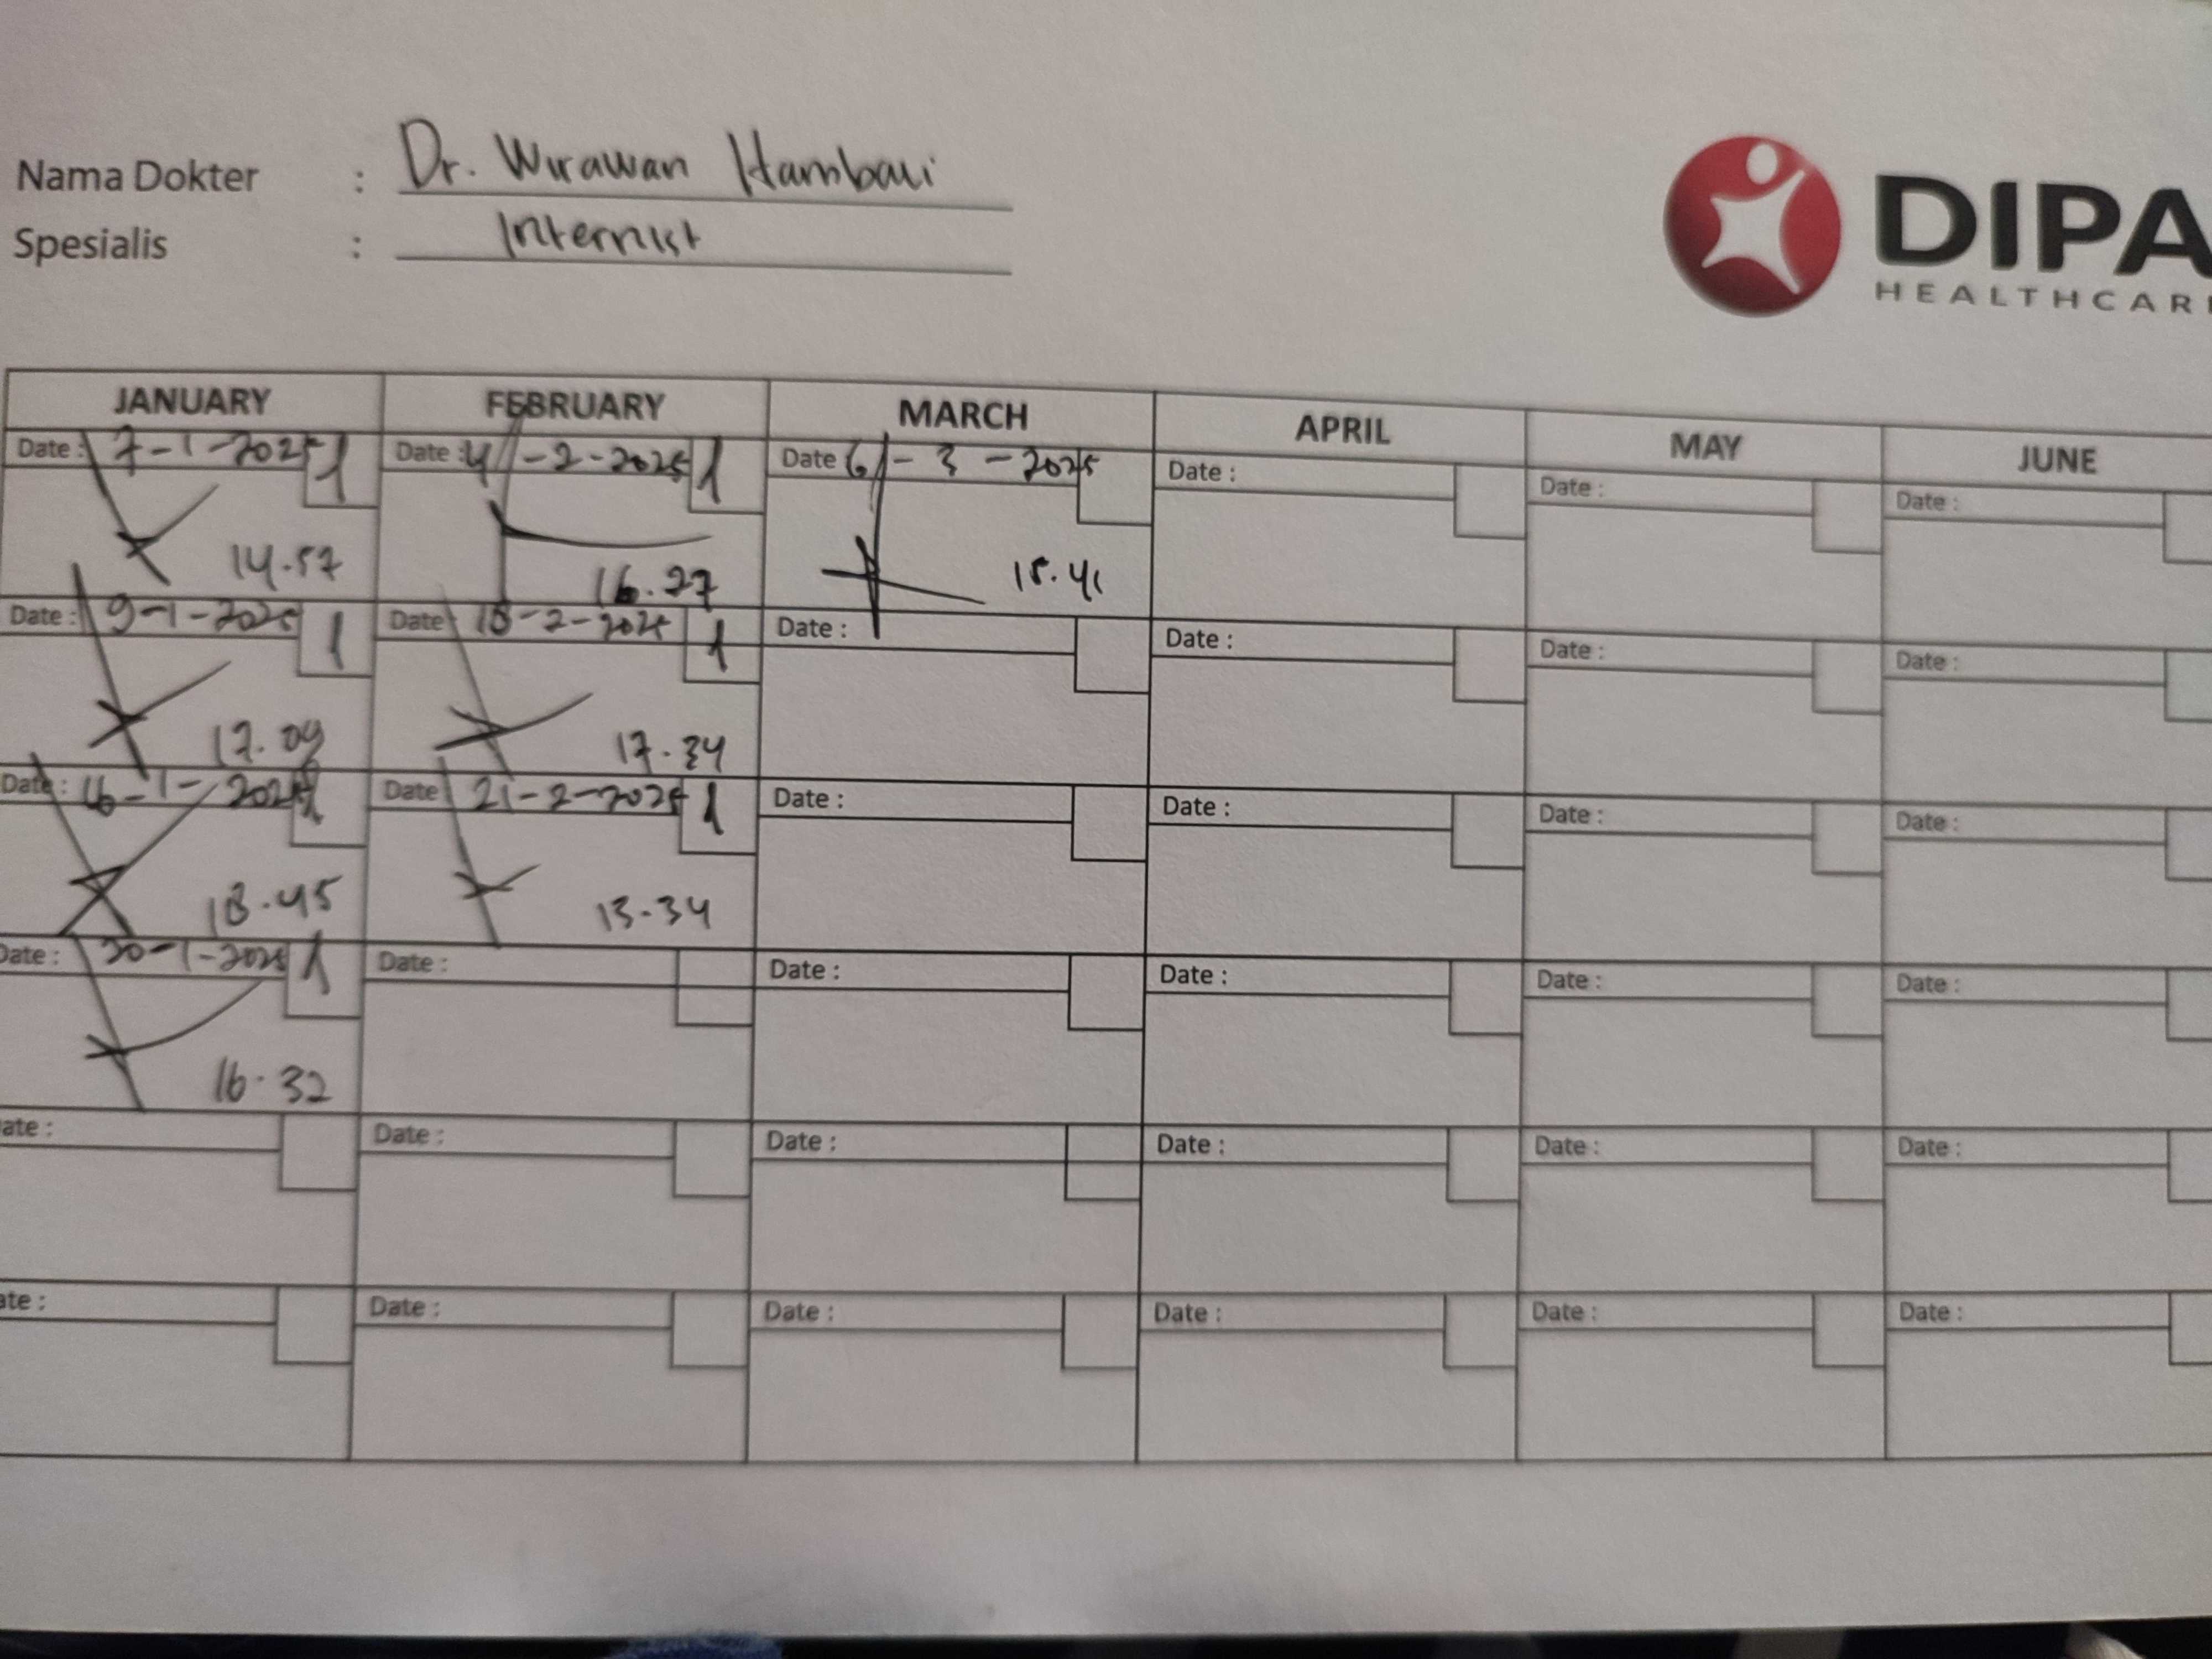 Nama Dokter : Dr. Wirawan Hambali
Spesialis : Internist
DIPA
HEALTHCAR
JANUARY FEBRUARY MARCH APRIL MAY JUNE
Date : 7-1-2025 1 Date : 4-2-2025 1 Date 6-3-2025 Date : Date : Date :
14.57 16.27 15.41
Date : 9-1-2025 1 Date 18-2-2025 1 Date : Date : Date : Date :
17.09 17.34
Date : 16-1-2025 1 Date 21-2-2025 1 Date : Date : Date : Date :
18.45 13.34
Date : 30-1-2025 1 Date : Date : Date : Date : Date :
16.32
ate : Date : Date : Date : Date : Date :
ate : Date : Date : Date : Date : Date :